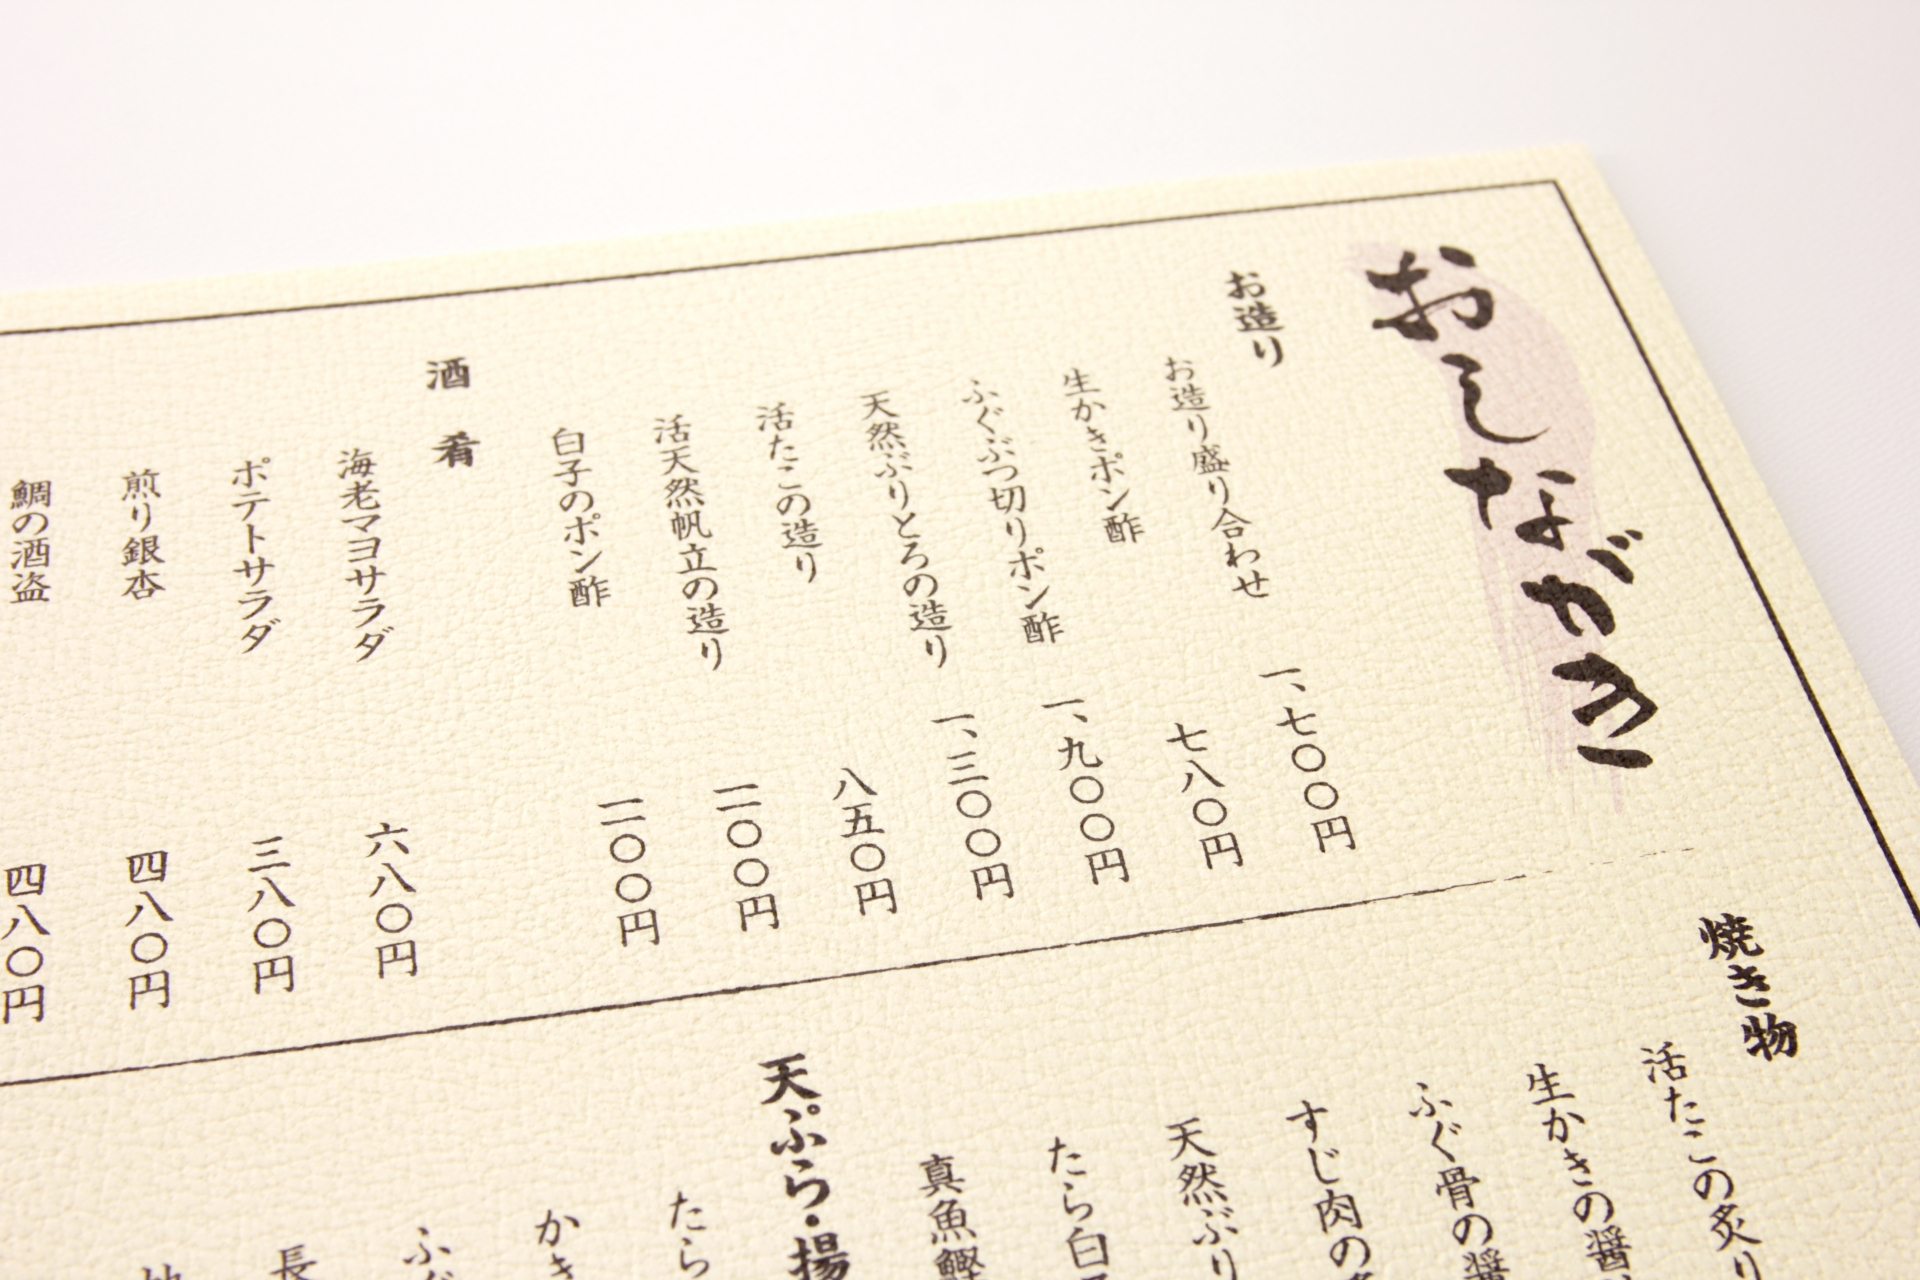 おしながき
お造り
お造り盛り合わせ 一、七〇〇円
生かきポン酢 七八〇円
ふぐぶつ切りポン酢 一、九〇〇円
天然ぶりとろの造り 一、三〇〇円
活たこの造り 八五〇円
活天然帆立の造り 一二〇〇円
白子のポン酢 一二〇〇円
酒肴
海老マヨサラダ 六八〇円
ポテトサラダ 三八〇円
煎り銀杏 四八〇円
鯛の酒盗 四八〇円
焼き物
活たこの炙り
生かきの醤
ふぐ骨の醤
すじ肉の
天然ぶり
たら白子
真魚鰹
天ぷら・揚
たら
かき
ふぐ
長